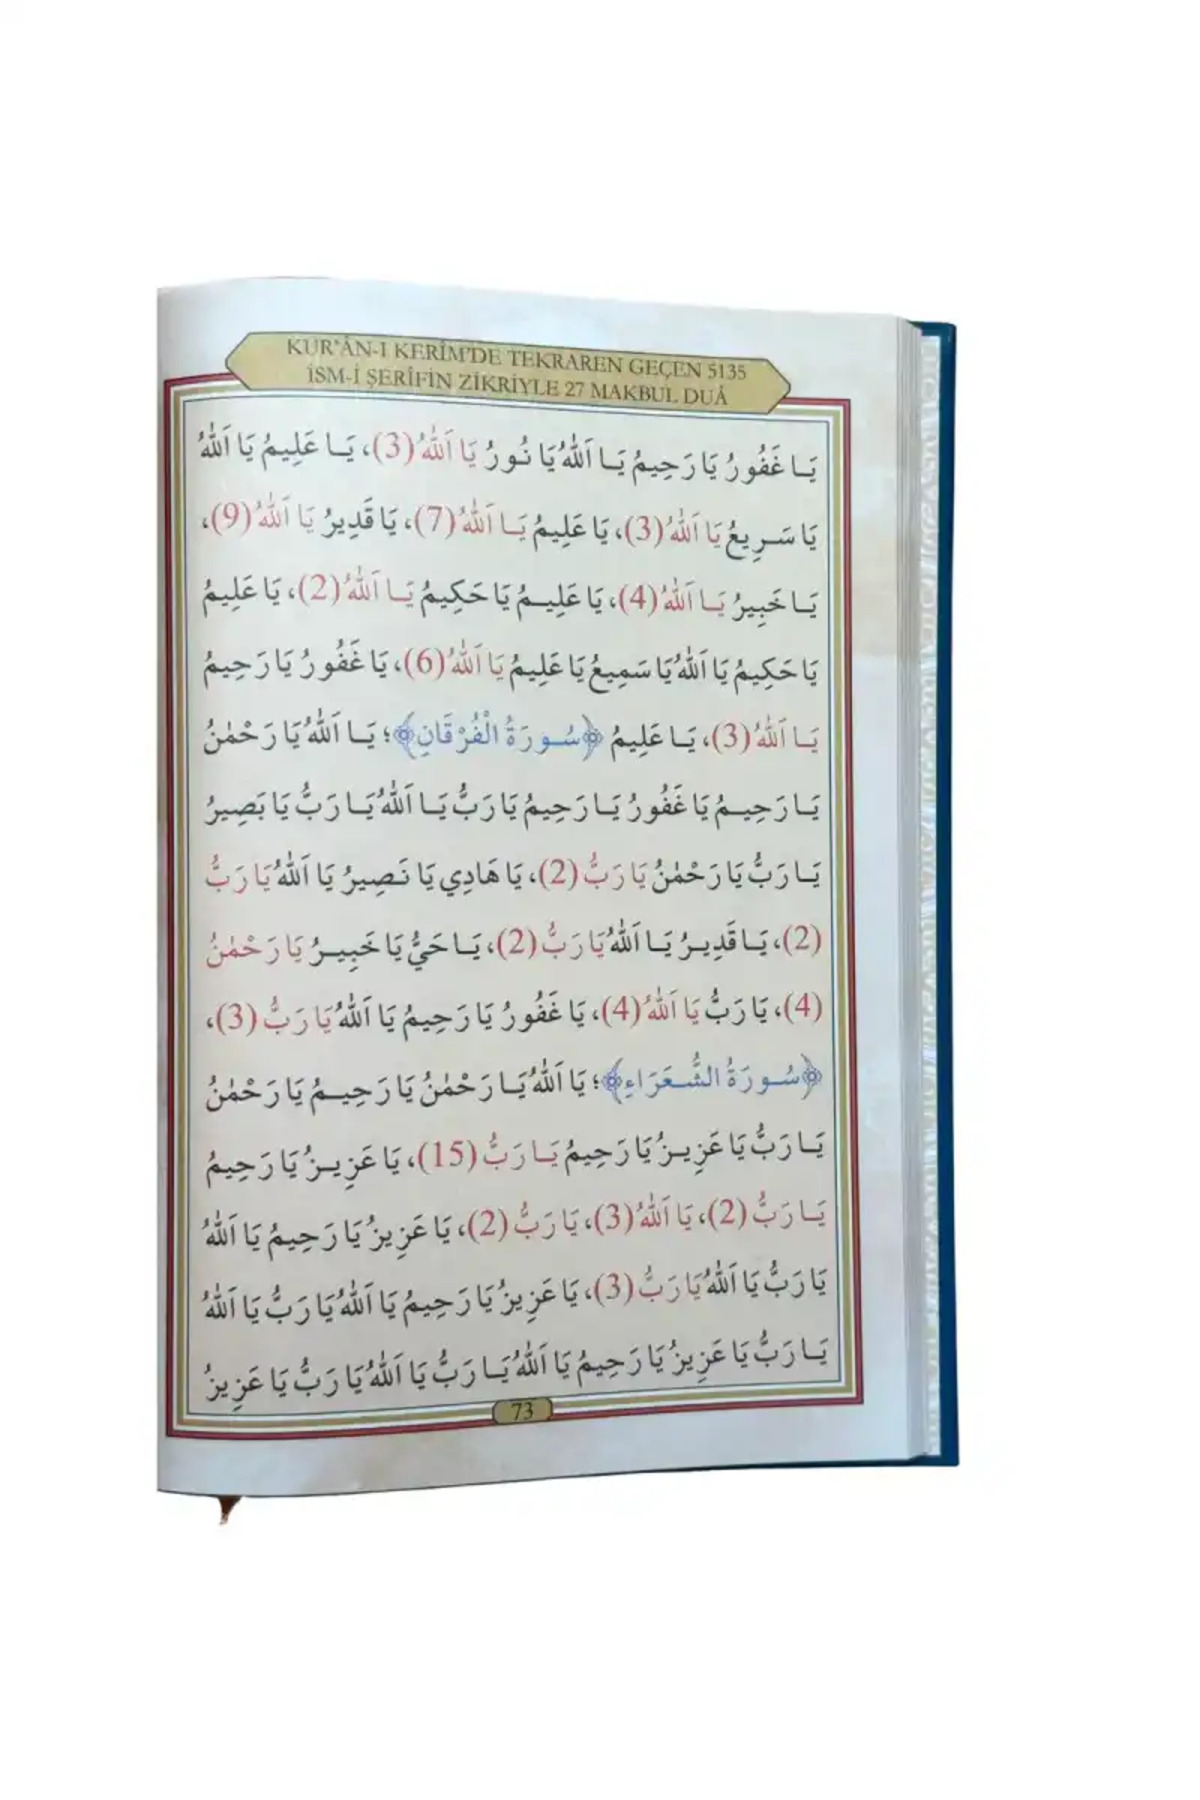 KUR'ÂN-I KERÎM'DE TEKRAREN GEÇEN 5135
İSM-İ ŞERÎFİN ZİKRİYLE 27 MAKBUL DUÂ
يَا غَفُورُ يَا رَحِيمُ يَا اَللّٰهُ يَا نُورُ يَا اَللّٰهُ (3)، يَا عَلِيمُ يَا اَللّٰهُ
يَا سَرِيعُ يَا اَللّٰهُ (3)، يَا عَلِيمُ يَا اَللّٰهُ (7)، يَا قَدِيرُ يَا اَللّٰهُ (9)،
يَا خَبِيرُ يَا اَللّٰهُ (4)، يَا عَلِيمُ يَا حَكِيمُ يَا اَللّٰهُ (2)، يَا عَلِيمُ
يَا حَكِيمُ يَا اَللّٰهُ يَا سَمِيعُ يَا عَلِيمُ يَا اَللّٰهُ (6)، يَا غَفُورُ يَا رَحِيمُ
يَا اَللّٰهُ (3)، يَا عَلِيمُ ﴿سُورَةُ الْفُرْقَانِ﴾؛ يَا اَللّٰهُ يَا رَحْمٰنُ
يَا رَحِيمُ يَا غَفُورُ يَا رَحِيمُ يَا رَبُّ يَا اَللّٰهُ يَا رَبُّ يَا بَصِيرُ
يَا رَبُّ يَا رَحْمٰنُ يَا رَبُّ (2)، يَا هَادِي يَا نَصِيرُ يَا اَللّٰهُ يَا رَبُّ
(2)، يَا قَدِيرُ يَا اَللّٰهُ يَا رَبُّ (2)، يَا حَيُّ يَا خَبِيرُ يَا رَحْمٰنُ
(4)، يَا رَبُّ يَا اَللّٰهُ (4)، يَا غَفُورُ يَا رَحِيمُ يَا اَللّٰهُ يَا رَبُّ (3)،
﴿سُورَةُ الشُّعَرَاءِ﴾؛ يَا اَللّٰهُ يَا رَحْمٰنُ يَا رَحِيمُ يَا رَحْمٰنُ
يَا رَبُّ يَا عَزِيزُ يَا رَحِيمُ يَا رَبُّ (15)، يَا عَزِيزُ يَا رَحِيمُ
يَا رَبُّ (2)، يَا اَللّٰهُ (3)، يَا رَبُّ (2)، يَا عَزِيزُ يَا رَحِيمُ يَا اَللّٰهُ
يَا رَبُّ يَا اَللّٰهُ يَا رَبُّ (3)، يَا عَزِيزُ يَا رَحِيمُ يَا اَللّٰهُ يَا رَبُّ يَا اَللّٰهُ
يَا رَبُّ يَا عَزِيزُ يَا رَحِيمُ يَا اَللّٰهُ يَا رَبُّ يَا اَللّٰهُ يَا رَبُّ يَا عَزِيزُ
73